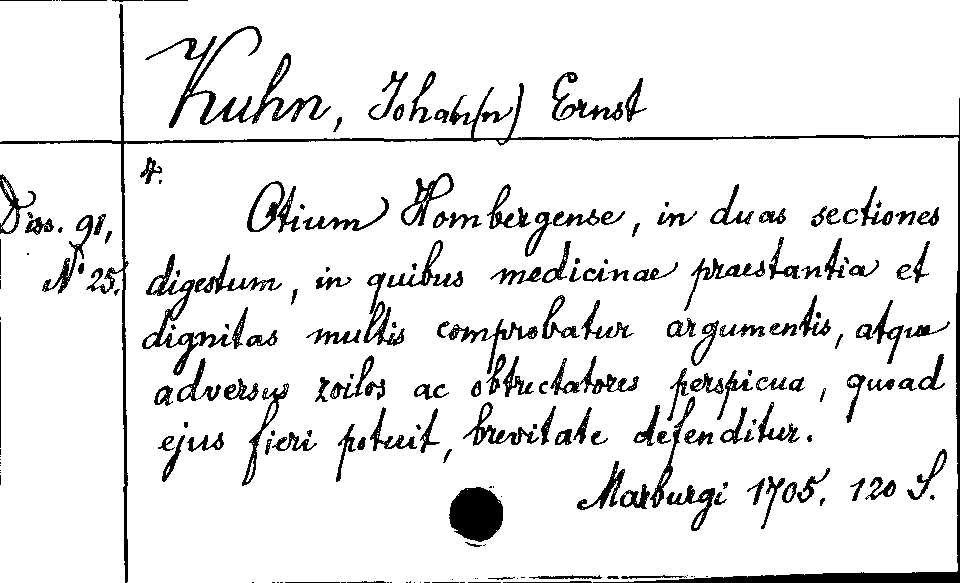 Kuhn, Johan(n) Ernst
4.
Diss. 91,
No 25.
Otium Hombergense, in duas sectiones
digestum, in quibus medicinae praestantia et
dignitas multis comprobatur argumentis, atque
adversus zoilos ac obtrectatores perspicua, quoad
ejus fieri potuit, brevitate defenditur.
Marburgi 1705. 120 S.